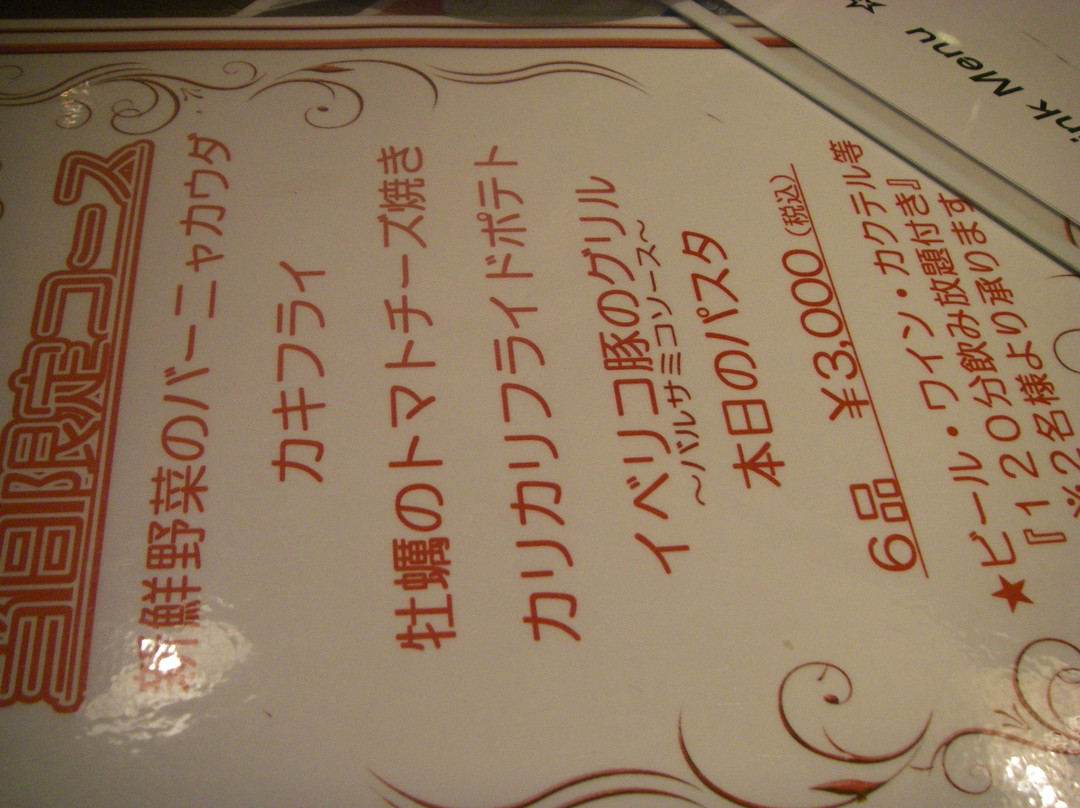 当日限定コース
新鮮野菜のバーニャカウダ
カキフライ
牡蠣のトマトチーズ焼き
カリカリフライドポテト
イベリコ豚のグリル
～バルサミコソース～
本日のパスタ
6品 ¥3,000 (税込)
★ビール・ワイン・カクテル等
『120分飲み放題付き』
※2名様より承ります
ink Menu ☆